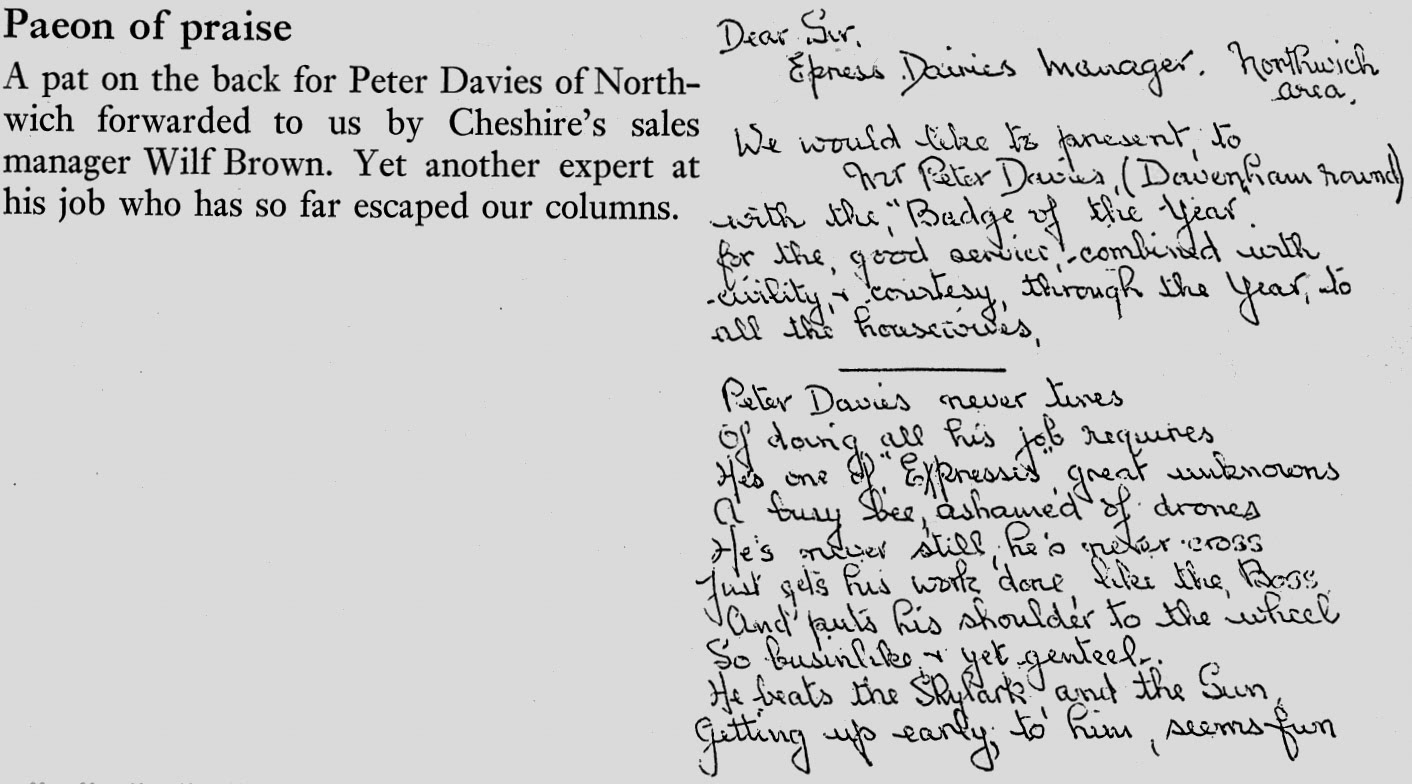 Paeon of praise
A pat on the back for Peter Davies of North-
wich forwarded to us by Cheshire's sales
manager Wilf Brown. Yet another expert at
his job who has so far escaped our columns.
Dear Sir.
Epress Dairies Manager. Northwich
area,
We would like to present, to
Mr Peter Davies, (Davenham round)
with the, "Badge of the Year"
for the, good service, combined with
civility, & courtesy, through the Year, to
all the housewives,
Peter Davies never tires
Of doing all his job requires
He's one of "Express's" great unknowns
A busy bee, ashamed of drones
He's never still, he's never cross
Just gets his work done, like the, Boss,
And puts his shoulder to the wheel
So businlike & yet genteel.
He beats the Skylark and the Sun,
Getting up early, to him, seems fun